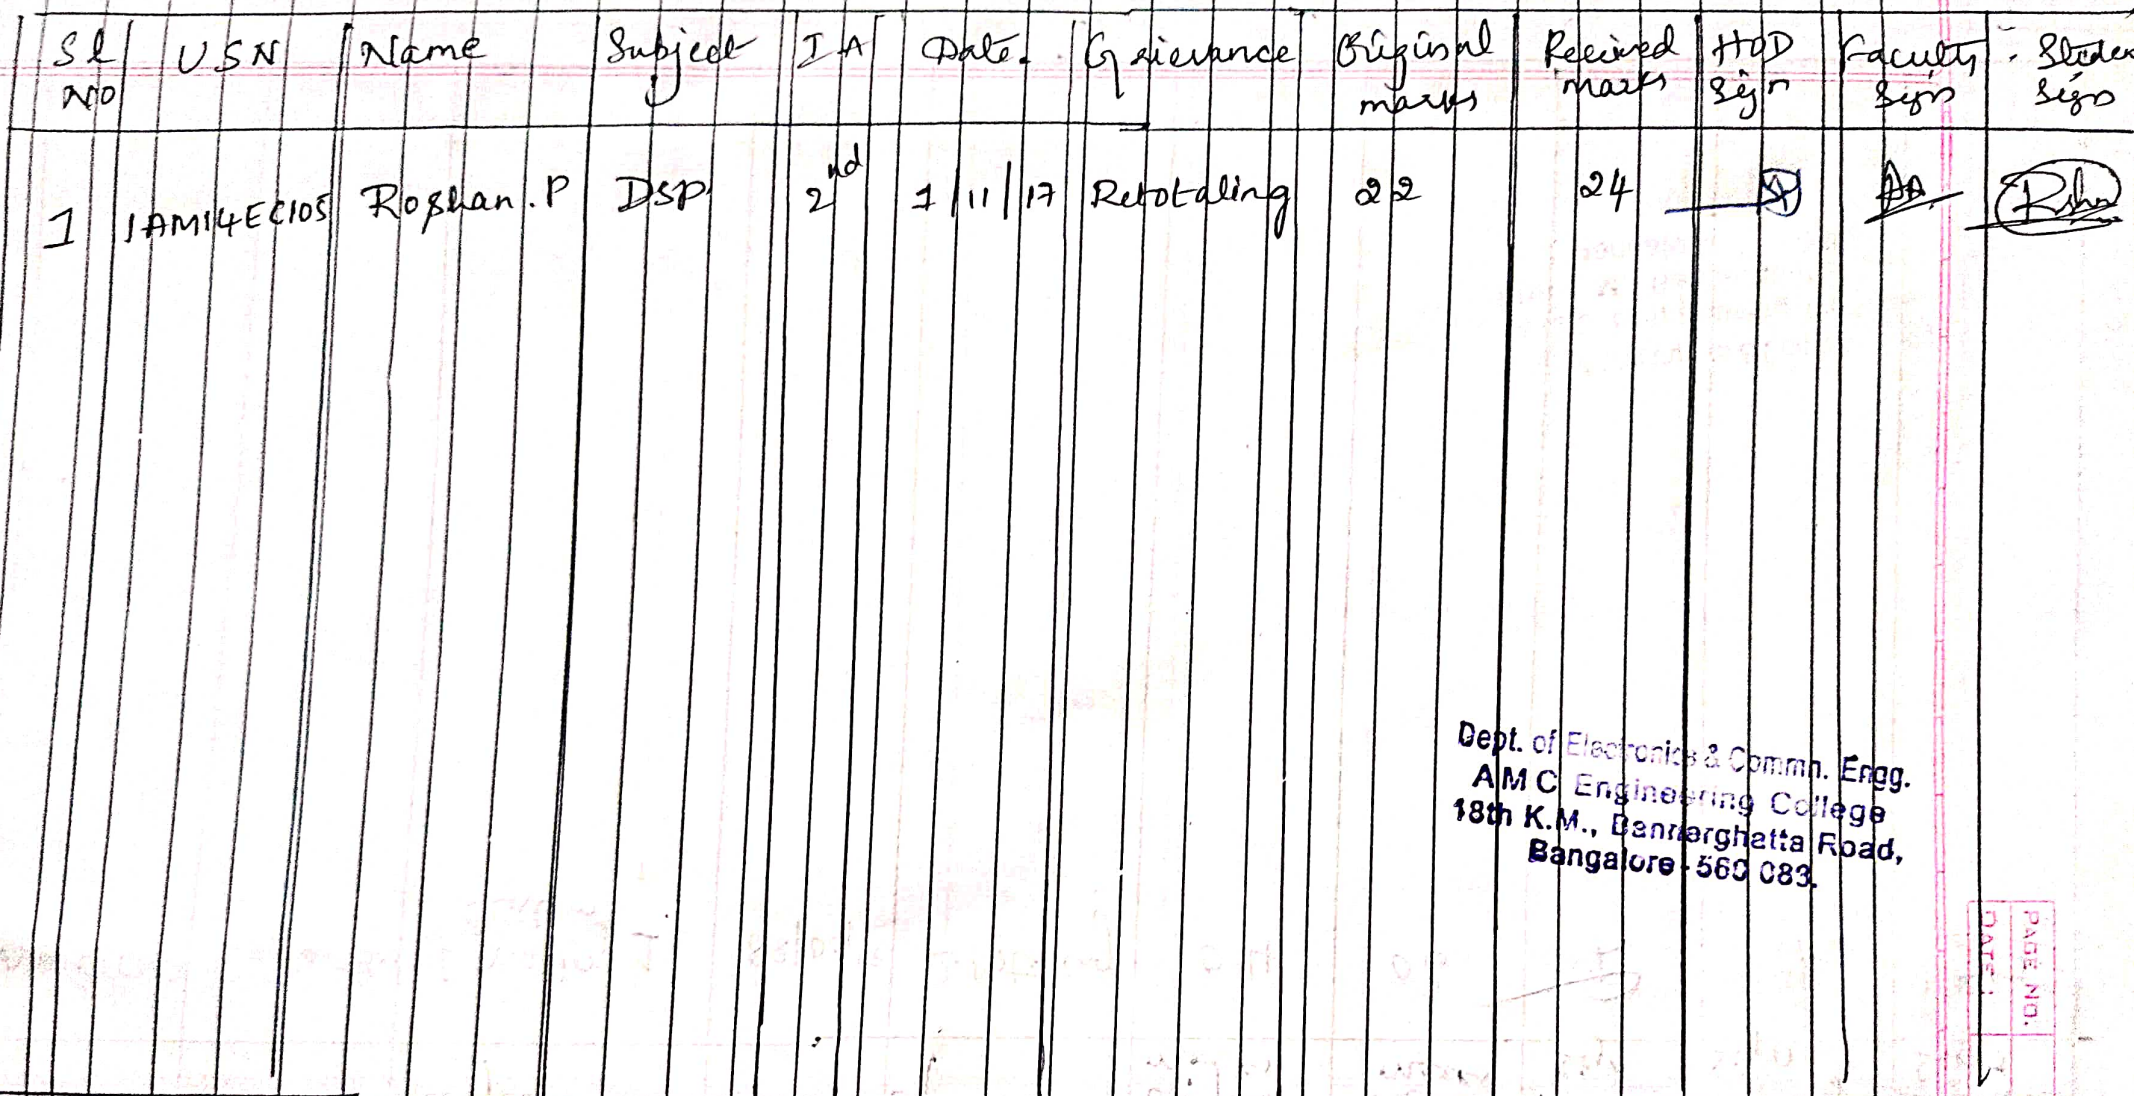 Sl No USN Name Subject IA Date. Grievance Original marks Received marks HOD Sign Faculty Sign Studen Sign
1 1AM14EC105 Roshan.P DSP 2nd 1/11/17 Retotaling 22 24
Dept. of Electronics & Commn. Engg.
AMC Engineering College
18th K.M., Bannerghatta Road,
Bangalore-560 083.
PAGE NO.
DATE: